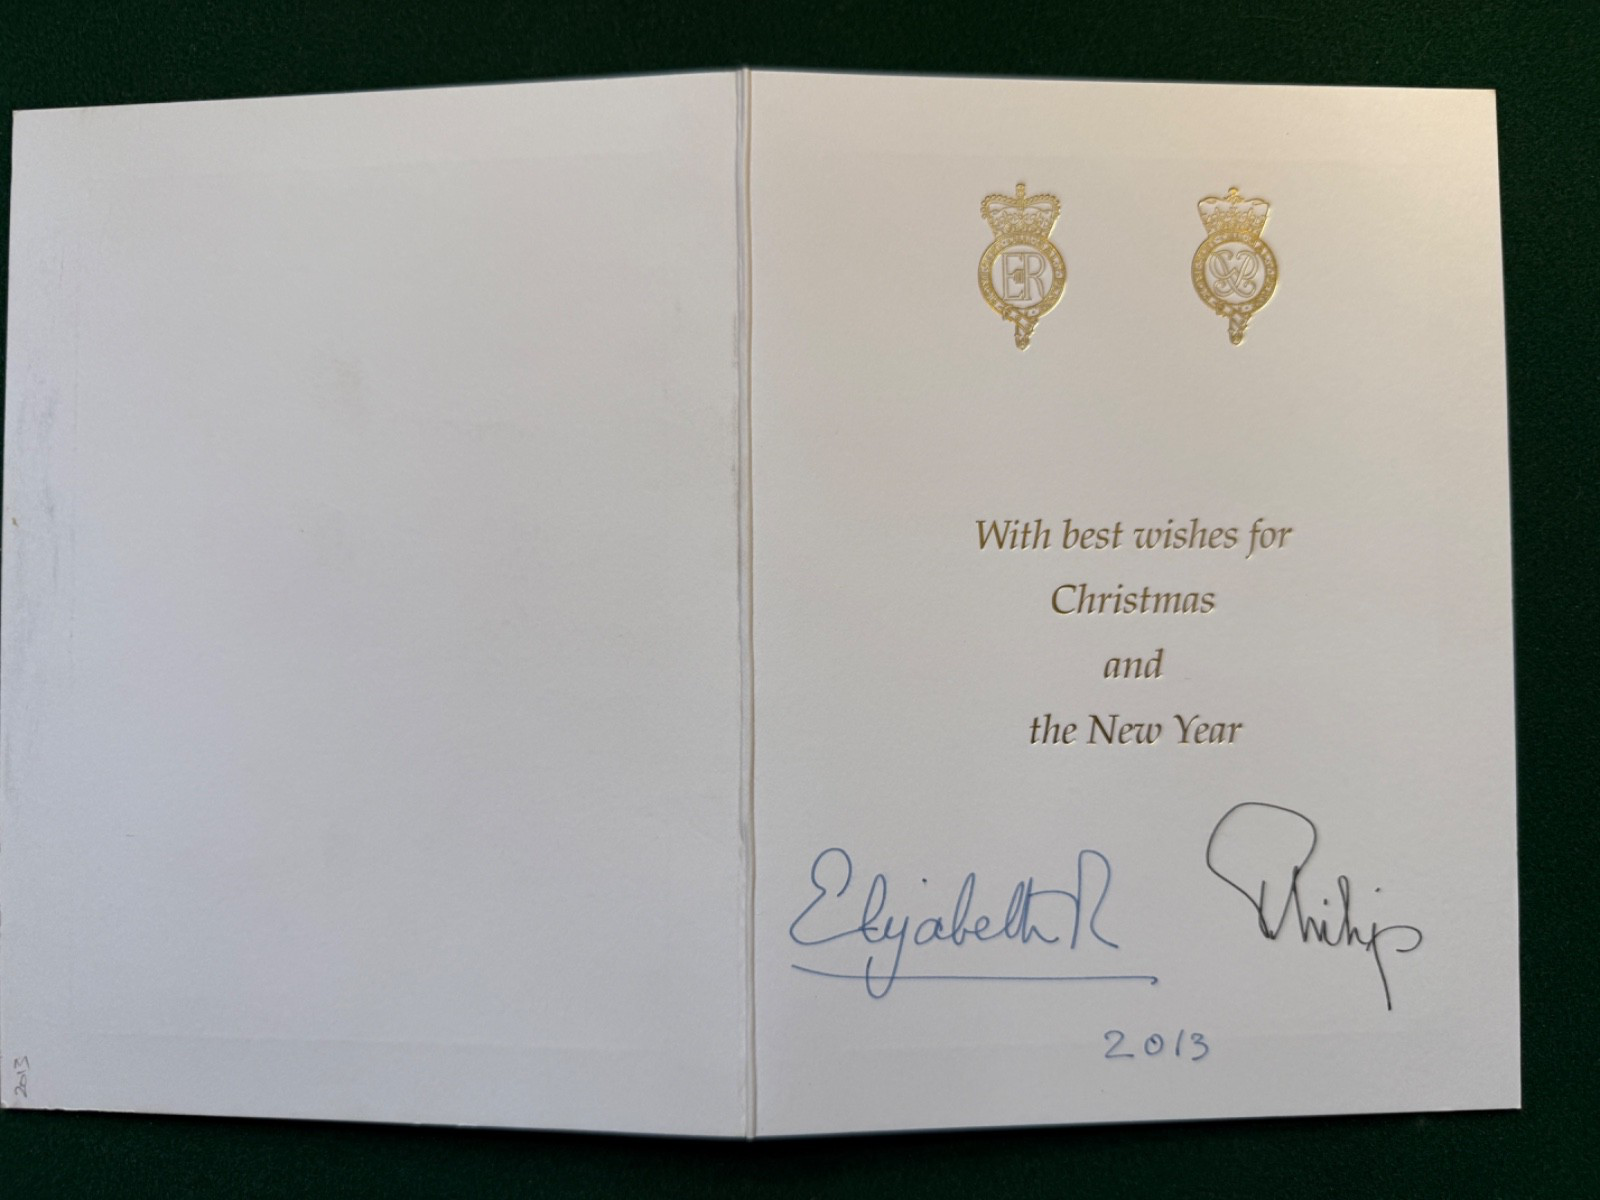 2013
EIIR
With best wishes for
Christmas
and
the New Year
Elizabeth R
Philip
2013